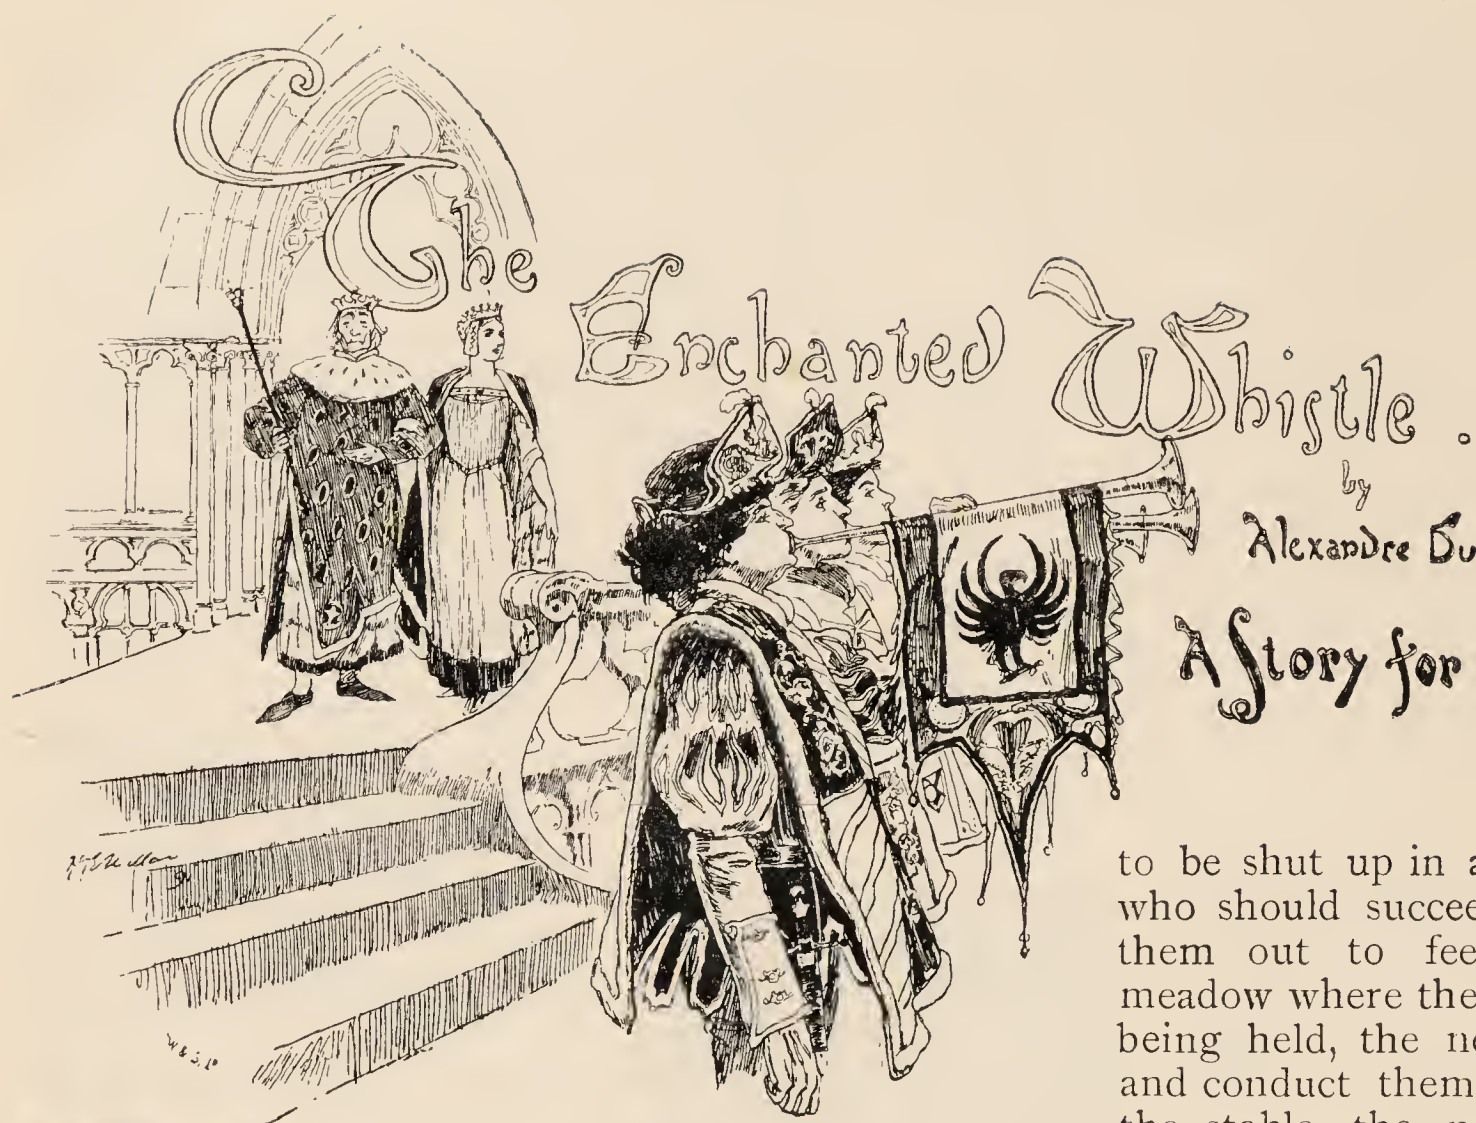 The
Enchanted
Whistle.
by
Alexandre Du
A Story for
to be shut up in a
who should succee
them out to fee
meadow where the
being held, the ne
and conduct them
the stable, the
W & S. Ld